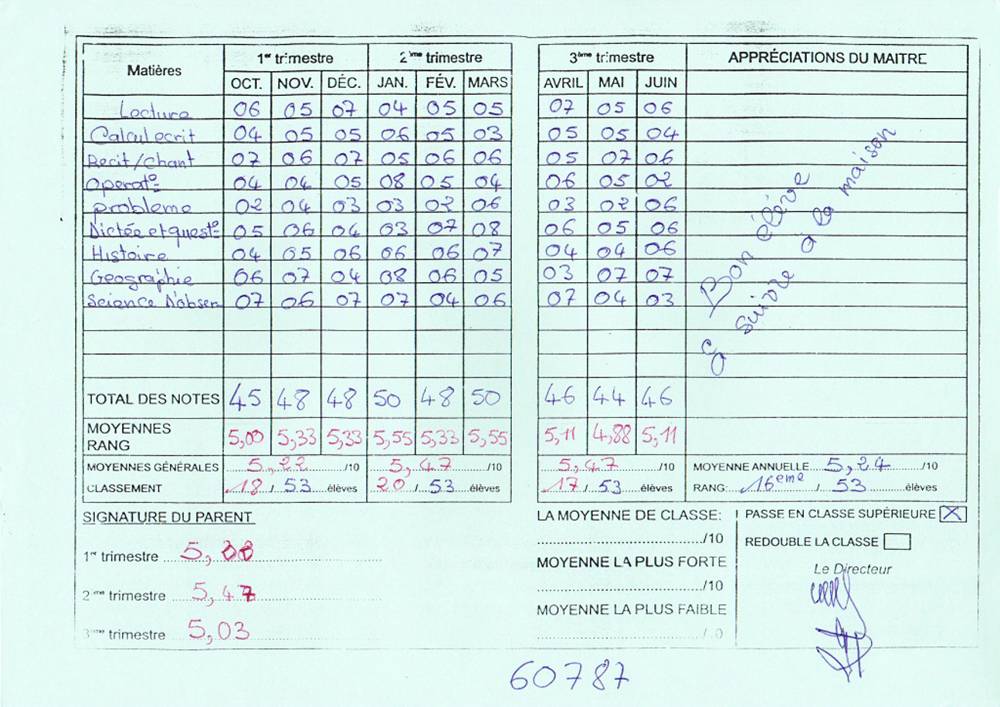 1er trimestre 2ème trimestre 3ème trimestre APPRÉCIATIONS DU MAITRE
Matières OCT. NOV. DÉC. JAN. FÉV. MARS AVRIL MAI JUIN
Lecture 06 05 07 04 05 05 07 05 06
Calcul ecrit 04 05 05 06 05 03 05 05 04
Recit/Chant 07 06 07 05 06 06 05 07 06
Operat° 04 04 05 08 05 04 06 05 02
problème 02 04 03 03 02 06 03 02 06
Dictée et quest° 05 06 04 03 07 08 06 05 06
Histoire 04 05 06 06 06 07 04 04 06
Geographie 06 07 04 08 06 05 03 07 07
Science D'obser 07 06 07 07 04 06 07 04 03
Bon élève
à suivre à la maison
TOTAL DES NOTES 45 48 48 50 48 50 46 44 46
MOYENNES
RANG 5,00 5,33 5,33 5,55 5,33 5,55 5,11 4,88 5,11
MOYENNES GÉNÉRALES 5,22 /10 5,47 /10 5,47 /10 MOYENNE ANNUELLE 5,24 /10
CLASSEMENT 18 / 53 élèves 20 / 53 élèves 17 / 53 élèves RANG: 16eme / 53 élèves
SIGNATURE DU PARENT
1er trimestre
2ème trimestre 5,47
3ème trimestre 5,03
LA MOYENNE DE CLASSE:
/10
MOYENNE LA PLUS FORTE
/10
MOYENNE LA PLUS FAIBLE
/10
PASSE EN CLASSE SUPÉRIEURE X
REDOUBLE LA CLASSE
Le Directeur
60787